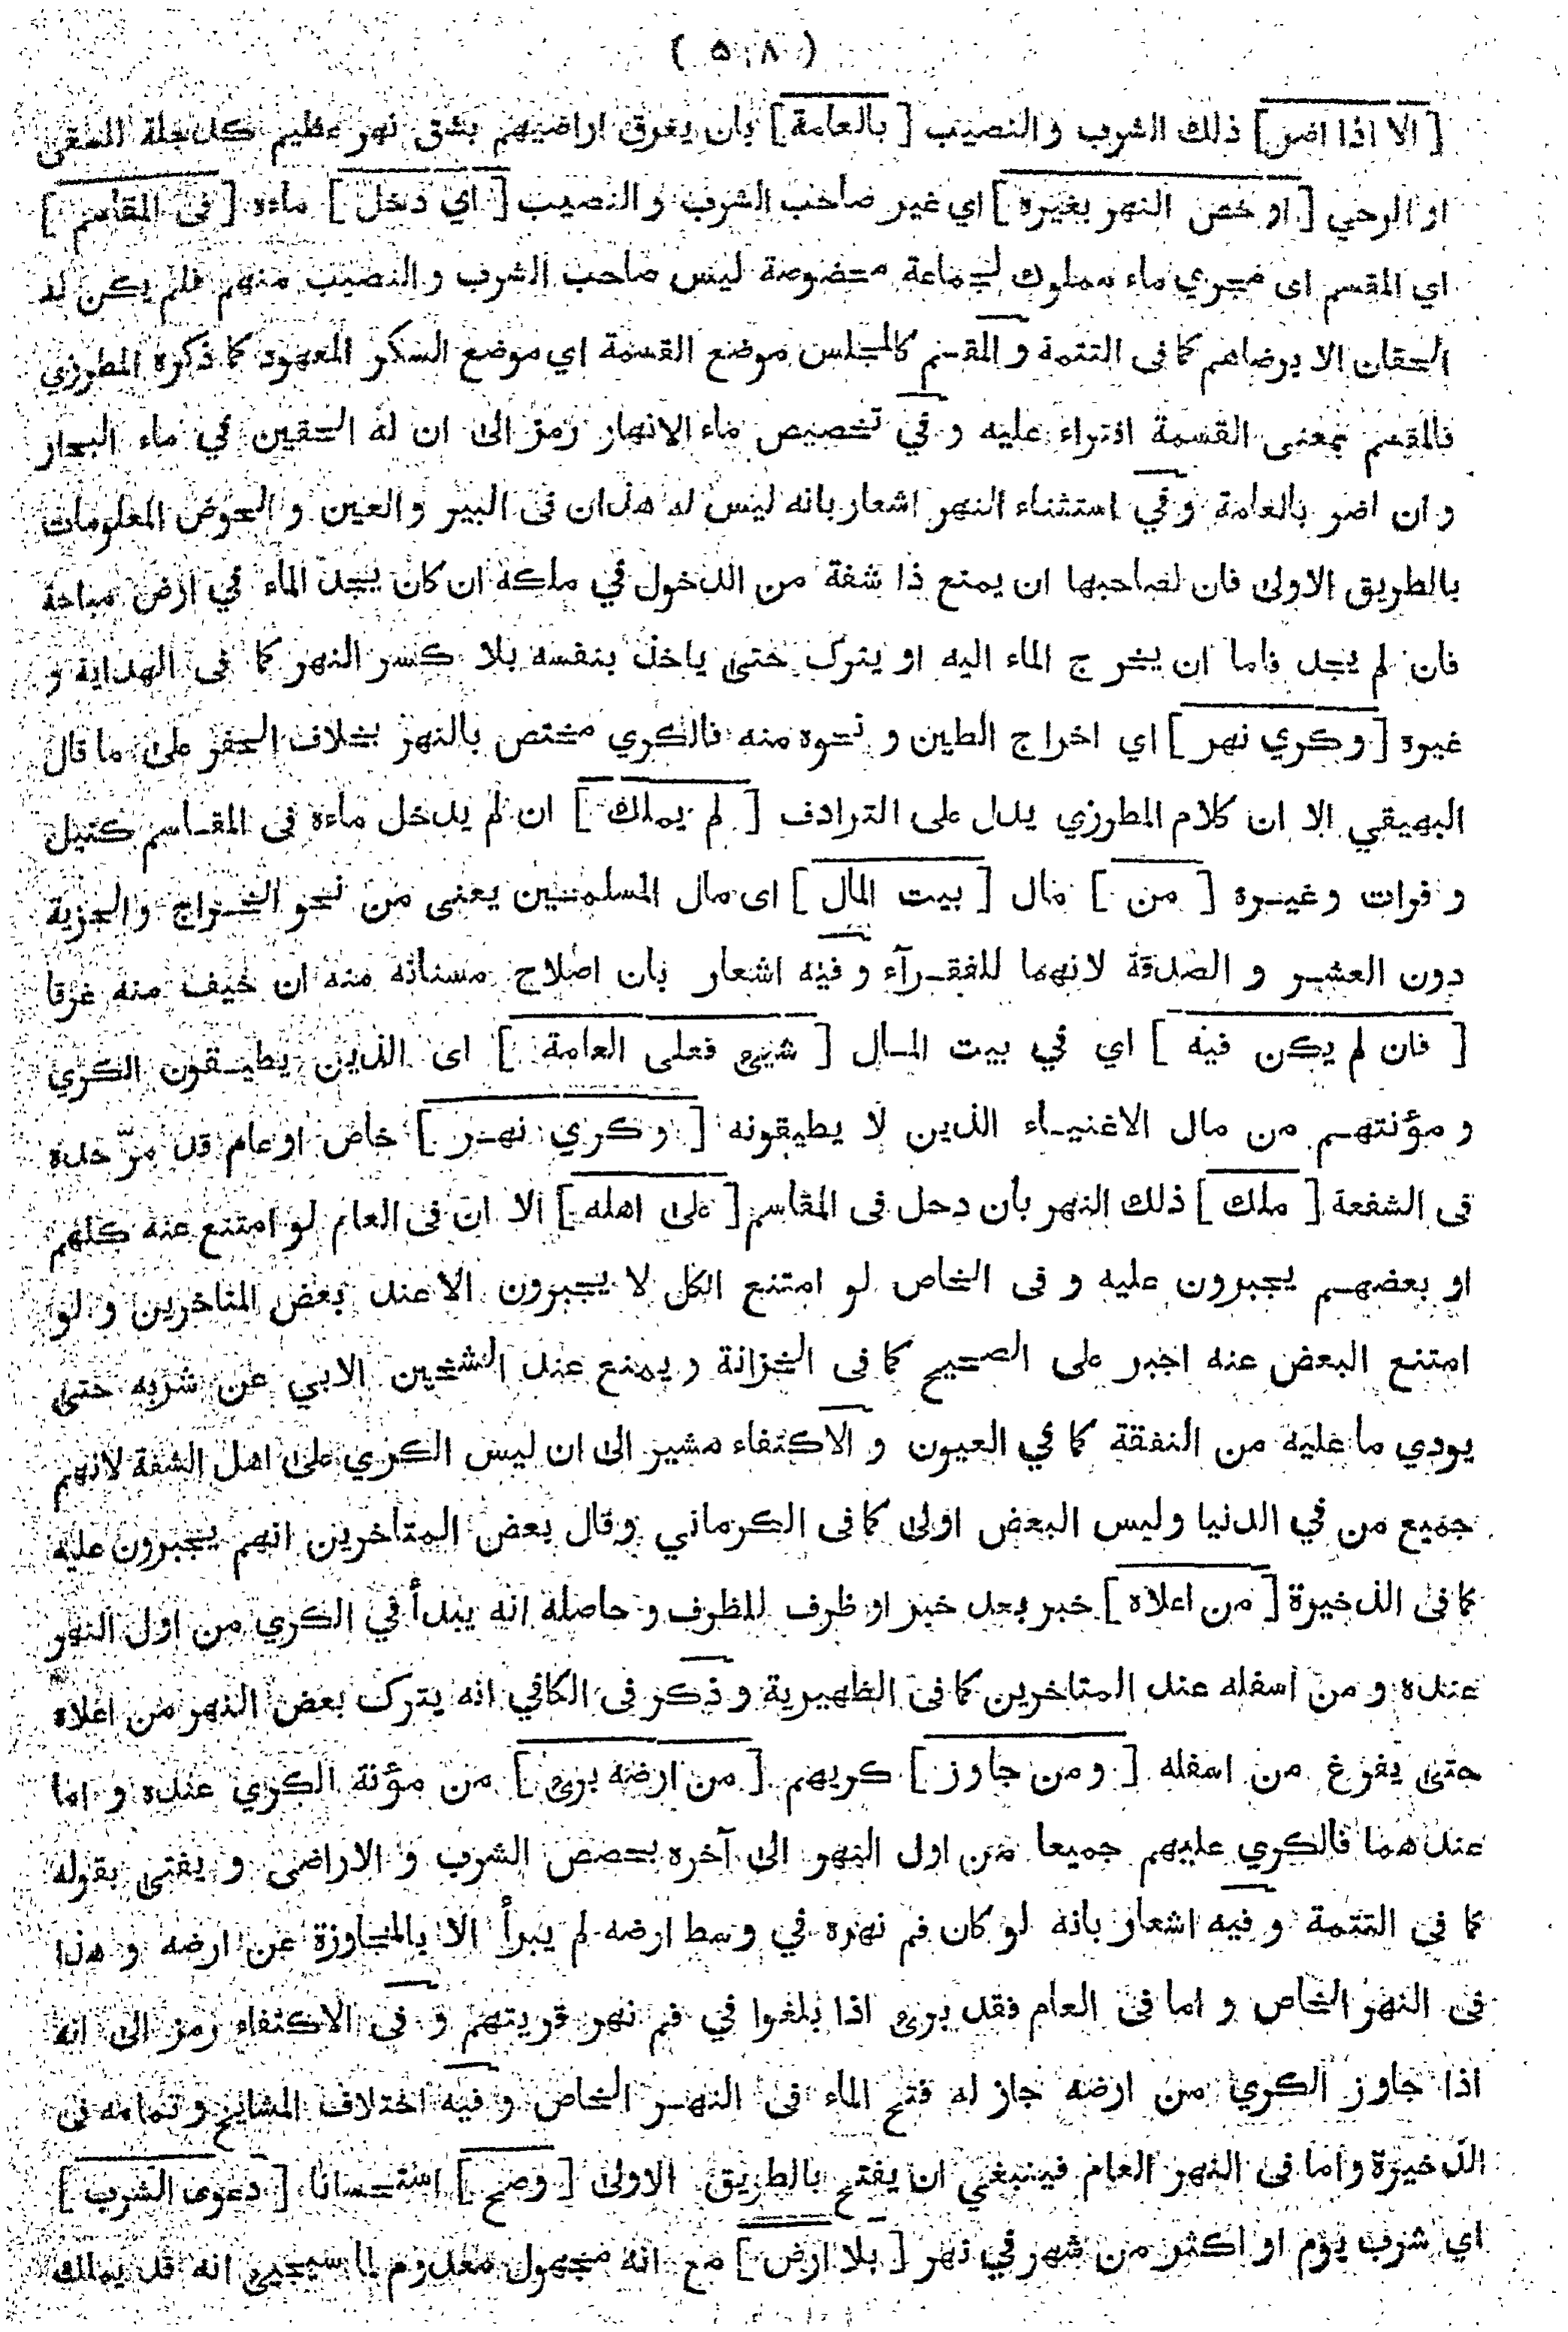 ( ٥٠٨ )
[ الا اذا اضر ] ذلك الشرب و النصيب [ بالعامة ] بان يغرق اراضيهم بشق نهر عظيم كدجلة للسقى
او الرحي [ او خص النهر بغيره ] اي غير صاحب الشرب و النصيب [ اي دخل ] ماءه [ فى المقاسم ]
اي المقسم اى مجري ماء مملوك لجماعة مخصوصة ليس صاحب الشرب و النصيب منهم فلم يكن له
الحقان الا برضاهم كما فى التتمة و المقسم كالمجلس موضع القسمة اي موضع السكر المعهود كما ذكره المطرزي
فالمقسم بمعنى القسمة افتراء عليه و في تخصيص ماء الانهار رمز الى ان له الحقين في ماء البحار
و ان اضر بالعامة و في استثناء النهر اشعار بانه ليس له هذان فى البير و العين و الحوض المعلومات
بالطريق الاولى فان لصاحبها ان يمنع ذا شفة من الدخول في ملكه ان كان يجد الماء في ارض مباحة
فان لم يجد فاما ان يخرج الماء اليه او يترك حتى ياخذ بنفسه بلا كسر النهر كما فى الهداية و
غيره [ و كري نهر ] اي اخراج الطين و نحوه منه فالكري مختص بالنهر بخلاف الحفر على ما قال
البهيقي الا ان كلام المطرزي يدل على الترادف [ لم يملك ] ان لم يدخل ماءه فى المقاسم كنيل
و فرات و غيره [ من ] مال [ بيت المال ] اى مال المسلمين يعنى من نحو الخراج و الجزية
دون العشر و الصدقة لانهما للفقرآء و فيه اشعار بان اصلاح مسناته منه ان خيف منه غرقا
[ فان لم يكن فيه ] اي في بيت المال [ شيئ فعلى العامة ] اى الذين يطيقون الكري
و مؤنتهم من مال الاغنياء الذين لا يطيقونه [ و كري نهر ] خاص او عام قد مرّ حده
فى الشفعة [ ملك ] ذلك النهر بان دخل فى المقاسم [ على اهله ] الا ان فى العام لو امتنع عنه كلهم
او بعضهم يجبرون عليه و فى الخاص لو امتنع الكل لا يجبرون الا عند بعض المتاخرين و لو
امتنع البعض عنه اجبر على الصحيح كما فى الخزانة و يمنع عند الشيخين الابي عن شربه حتى
يودي ما عليه من النفقة كما في العيون و الاكتفاء مشير الى ان ليس الكري على اهل الشفة لانهم
جميع من في الدنيا وليس البعض اولى كما فى الكرماني و قال بعض المتاخرين انهم يجبرون عليه
كما فى الذخيرة [ من اعلاه ] خبر بعد خبر او ظرف للظرف و حاصله انه يبدأ في الكري من اول النهر
عنده و من اسفله عند المتاخرين كما فى الظهيرية و ذكر فى الكافي انه يترك بعض النهر من اعلاه
حتى يفرغ من اسفله [ و من جاوز ] كريهم [ من ارضه برئ ] من مؤنة الكري عنده و اما
عندهما فالكري عليهم جميعا من اول النهر الى آخره بحصص الشرب و الاراضى و يفتى بقوله
كما فى التتمة و فيه اشعار بانه لو كان فم نهره في وسط ارضه لم يبرأ الا بالمجاوزة عن ارضه و هذا
فى النهر الخاص و اما فى العام فقد برئ اذا بلغوا في فم نهر قريتهم و فى الاكتفاء رمز الى انه
اذا جاوز الكري من ارضه جاز له فتح الماء فى النهر الخاص و فيه اختلاف المشايخ و تمامه فى
الذخيرة و اما فى النهر العام فينبغي ان يفتح بالطريق الاولى [ و صح ] استحسانا [ دعوى الشرب ]
اي شرب يوم او اكثر من شهر في نهر [ بلا ارض ] مع انه مجهول معدوم لما سيجيئ انه قد يملك